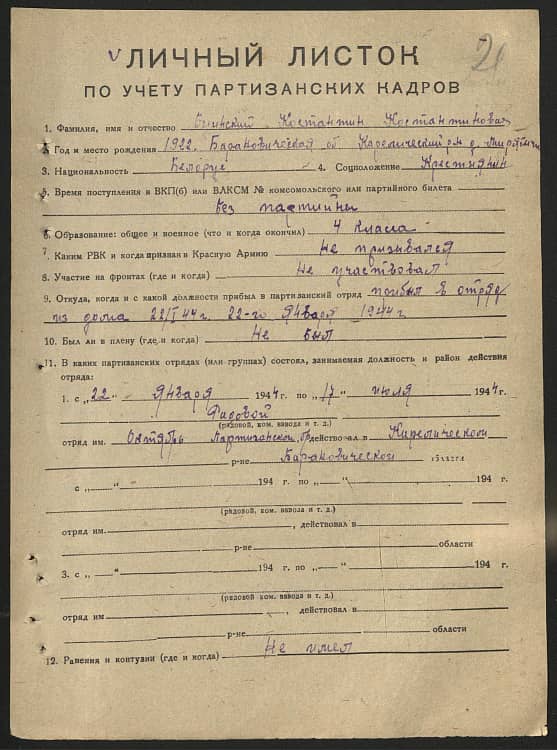 V ЛИЧНЫЙ ЛИСТОК
2
ПО УЧЕТУ ПАРТИЗАНСКИХ КАДРОВ
1. Фамилия, имя и отчество Костантин Костантинович
2. Год и место рождения 1922. Барановическая об Карелический р-н д.
3. Национальность Белорус 4. Соцположение Крестиянин
5. Время поступления в ВКП(б) или ВЛКСМ № комсомольского или партийного билета
без партийны
6. Образование: общее и военное (что и когда окончил) 4 класа
7. Каким РВК и когда призван в Красную Армию Не призывался
8. Участие на фронтах (где и когда) Не участвовал
9. Откуда, когда и с какой должности прибыл в партизанский отряд прибыл в отряд
из дома 22/I 44 г. 22-го Января 1944 г.
10. Был ли в плену (где и когда) Не был
11. В каких партизанских отрядах (или группах) состоял, занимаемая должность и район действия
отряда:
1. с „22" Января 1944 г. по „17" июля 1944 г.
Рядовой
(рядовой, ком. взвода и т. д.)
отряд им. Октябрь Партизанской действовал в Карелическом
р-не Барановической области
с „ " 194 г. по „ " 194 г.
(рядовой, ком. взвода и т. д.)
отряд им. , действовал в
р-не области
3. с „ " 194 г. по „ " 194 г.
(рядовой, ком. взвода и т. д.)
отряд им , действовал в
р-не области
12. Ранения и контузии (где и когда) Не имел